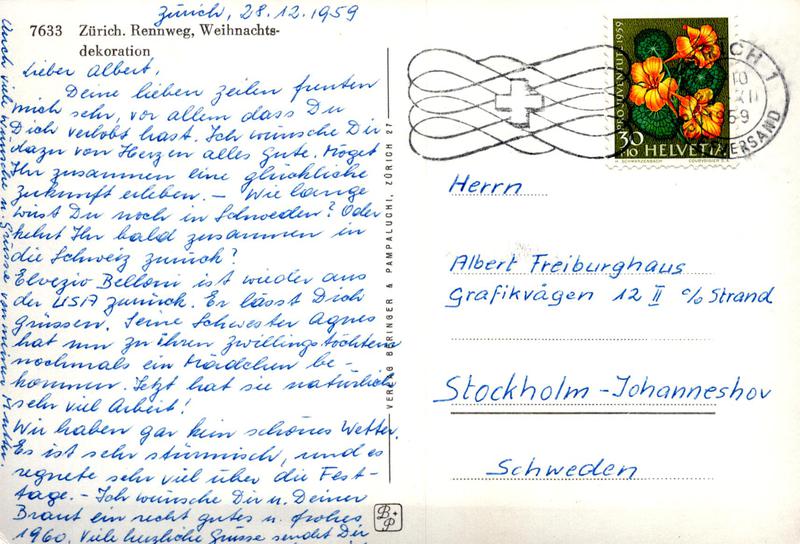 Zürich, 28.12.1959
7633 Zürich. Rennweg, Weihnachts-
dekoration
Lieber Albert,
Deine lieben Zeilen freuten
mich sehr, vor allem dass Du
Dich verlobt hast. Ich wünsche Dir
dazu von Herzen alles Gute. Möget
Ihr zusammen eine glückliche
Zukunft erleben. – Wie lange
wirst Du noch in Schweden? Oder
kehrt Ihr bald zusammen in
die Schweiz zurück?
Elvezio Belloni ist wieder aus
der USA zurück. Er lässt Dich
grüssen. Seine Schwester Agnes
hat nun zu ihren Zwillingstöchtern
nochmals ein Mädchen be-
kommen. Jetzt hat sie natürlich
sehr viel Arbeit!
Wir haben gar kein schönes Wetter.
Es ist sehr stürmisch, und es
regnete sehr viel über die Fest-
tage. – Ich wünsche Dir u. Deiner
Braut ein recht gutes u. frohes
1960. Viele herzliche Grüsse sendet Dir
Auch viele Wünsche u. Grüsse von meiner Mutter.
VERLAG BERINGER & PAMPALUCHI, ZÜRICH 27
B+P
PRO JUVENTUTE 1959
30
+10 HELVETIA
COURVOISIER S.A.
1
10
XII
1959
VERSAND
Herrn
Albert Freiburghaus
Grafikvägen 12 II c/o Strand
Stockholm-Johanneshov
Schweden